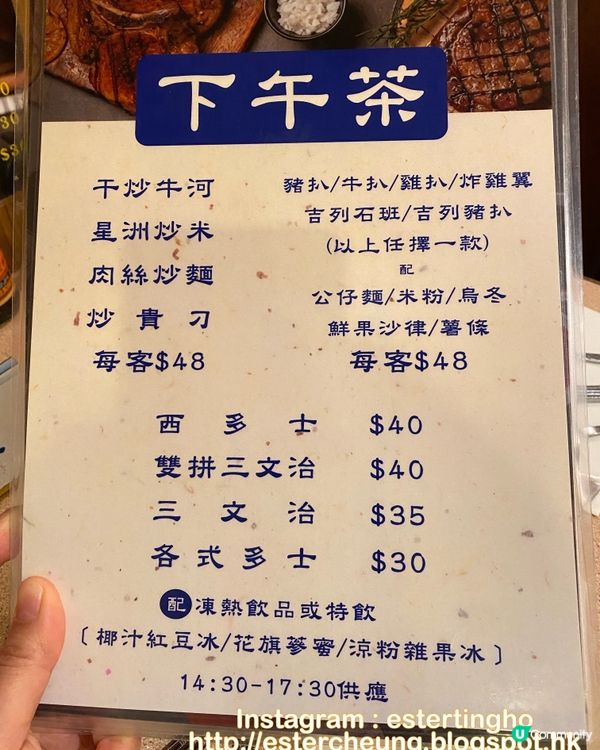 下午茶
干炒牛河
星洲炒米
肉絲炒麵
炒貴刁
每客$48
豬扒/牛扒/雞扒/炸雞翼
吉列石班/吉列豬扒
(以上任擇一款)
配
公仔麵/米粉/烏冬
鮮果沙律/薯條
每客$48
西多士 $40
雙拼三文治 $40
三文治 $35
各式多士 $30
配凍熱飲品或特飲
〔椰汁紅豆冰/花旗蔘蜜/涼粉雜果冰〕
14:30-17:30供應
Instagram : estertingho
http://estercheung.blogspot.hk
U Community